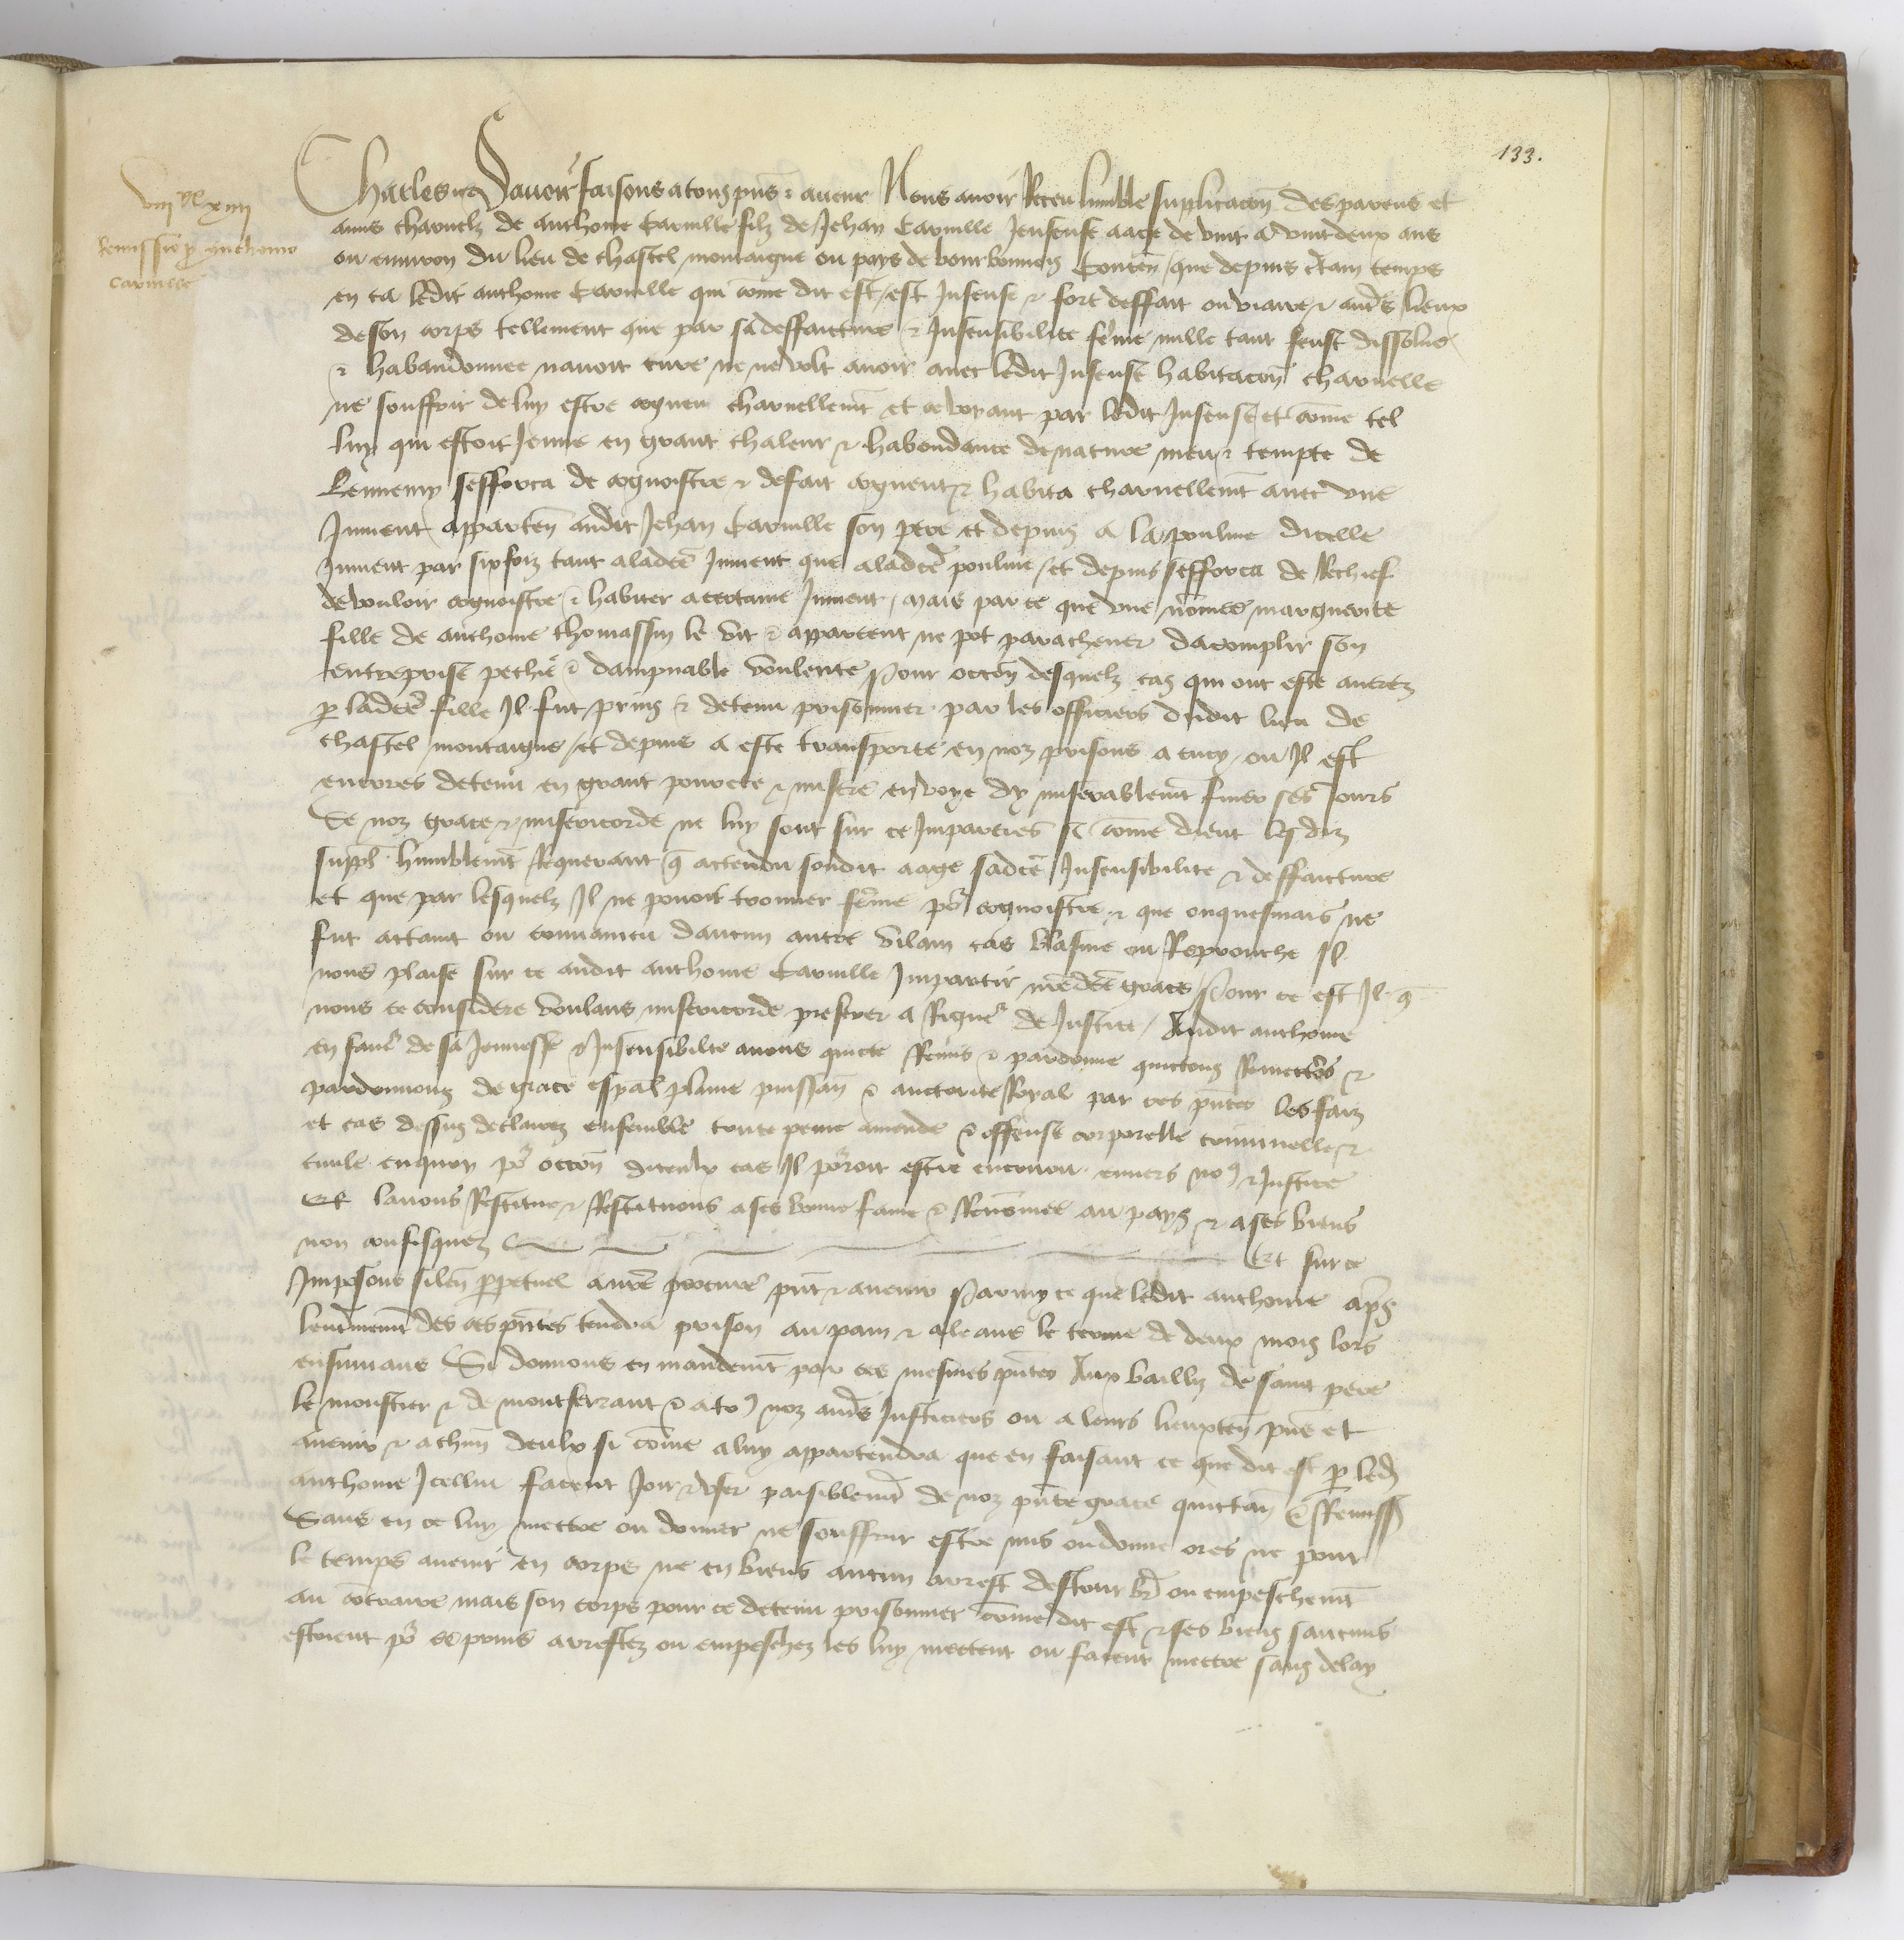 133.
viij xx xiiij
Remissio p anthonio
Carville
Charles etc Savoir faisons a tous pns & avenir Nous avoir Receu lumble supplicacon des parens et
amis charnelz de anthoine Carville filz de Jehan Carville Jnsense aage de vint a vint deux ans
ou environ du lieu de chastel montaigne ou pays de bourbonnois Conten que depuis ctain temps
en ca ledit anthoine Carville qui come dit est / est Jnsense & fort deffait ou viaire & aues lieux
de son corps tellement que par sa deffaicture & Jnsensibilite feme nulle tant feust dissolue
& habandonnee navoit cure ne ne volt avoir avec ledit Jnsense habitacon charnelle
ne souffrir de luy estre congneu charnellemt et ce voyant par ledit Jnsense et come tel
luy qui estoit Jeune en grant chaleur & habondance de nature meu & tempte de
Lennemy sefforca de congnoistre & de fait congneut & habita charnellemt avec une
Jument apparten audit Jehan Carville son pere et depuis a la pouline dicelle
Jument par six foiz tant a ladce Jument que a ladce pouline / et depuis sefforca de Rechief
de vouloir congnoistre & habiter a certaine Jument / mais par ce que une nomee marguerite
fille de anthoine thomassin le vit & apparceut ne pot parachever dacomplir son
entreprise pechie & dampnable voulente Pour occon desquelz cas qui ont este averez
p ladce fille Jl fut prins & detenu prisonnier par les officiers dudit lieu de
chastel montaigne / et depuis a este transporte en noz prisons a cucy / ou Jl est
encores detenu en grant povrete & misere en voye dy miserablemt finer ses Jours
Se noz grace & misericorde ne luy sont sur ce Jmparties si come dient lesdiz
suppl humblemt Requerant q actendu sondit aage sadce Jnsensibilite & deffaicture
et que par lesquelz Jl ne povoit trouver feme po congnoistre & que onquesmais ne
fut actaint ou convaincu daucun autre vilain cas blasme ou Reprouche Jl
nous plaise sur ce audit anthoine Carville Jmpartir nredce grace Pour ce est Jl q
nous ce considere voulans misericorde preferer a Rigue de Justice / Audit anthoine
en fave de sa Jeunesse & Jnsensibilte avons quicte Remis & pardonne quictons Remectons &
pardonnons de grace espal plaine puissan & auctorite Royal par ces pntes les faiz
et cas dessus declairez ensemble toute peine amende & offense corporelle criminelle &
civile en quoy po occon diceulx cas Jl poroit estre encouru envers no & Justice
Et lavons Restitue & Restituons a ses bonne fame & Renomee au pays & a ses biens
non confisquez Et sur ce
Jmposons silen perpetuel a nre procure pnt & avenir Parmy ce que ledit anthoine apres
lenterinemt des ces pntes tendra prison au pain & a leaue le terme de deux mois lors
ensuivans Si donnons en mandemt par ces mesmes pntes Aux bailliz de saint pere
le moustier & de montferrant & a to noz aues Justiciers ou a leurs lieuxten pns et
avenir & a chun deulx si come a luy appartendra que en faisant ce que dit est p led
anthoine Jcellui facent Joir & user paisiblemt de noz pnte grace quictan & Remiss
Sans en ce luy mettre ou donner ne souffrir estre mis ou donne ores ne pour
le temps avenir en corps ne en biens aucun arrest destourb ou empeschemt
au contraire mais son corps pour ce detenu prisonnier come dit est & ses biens saucuns
estoient po ce prins arrestez ou empeschez les luy mettent ou facent mettre sans delay